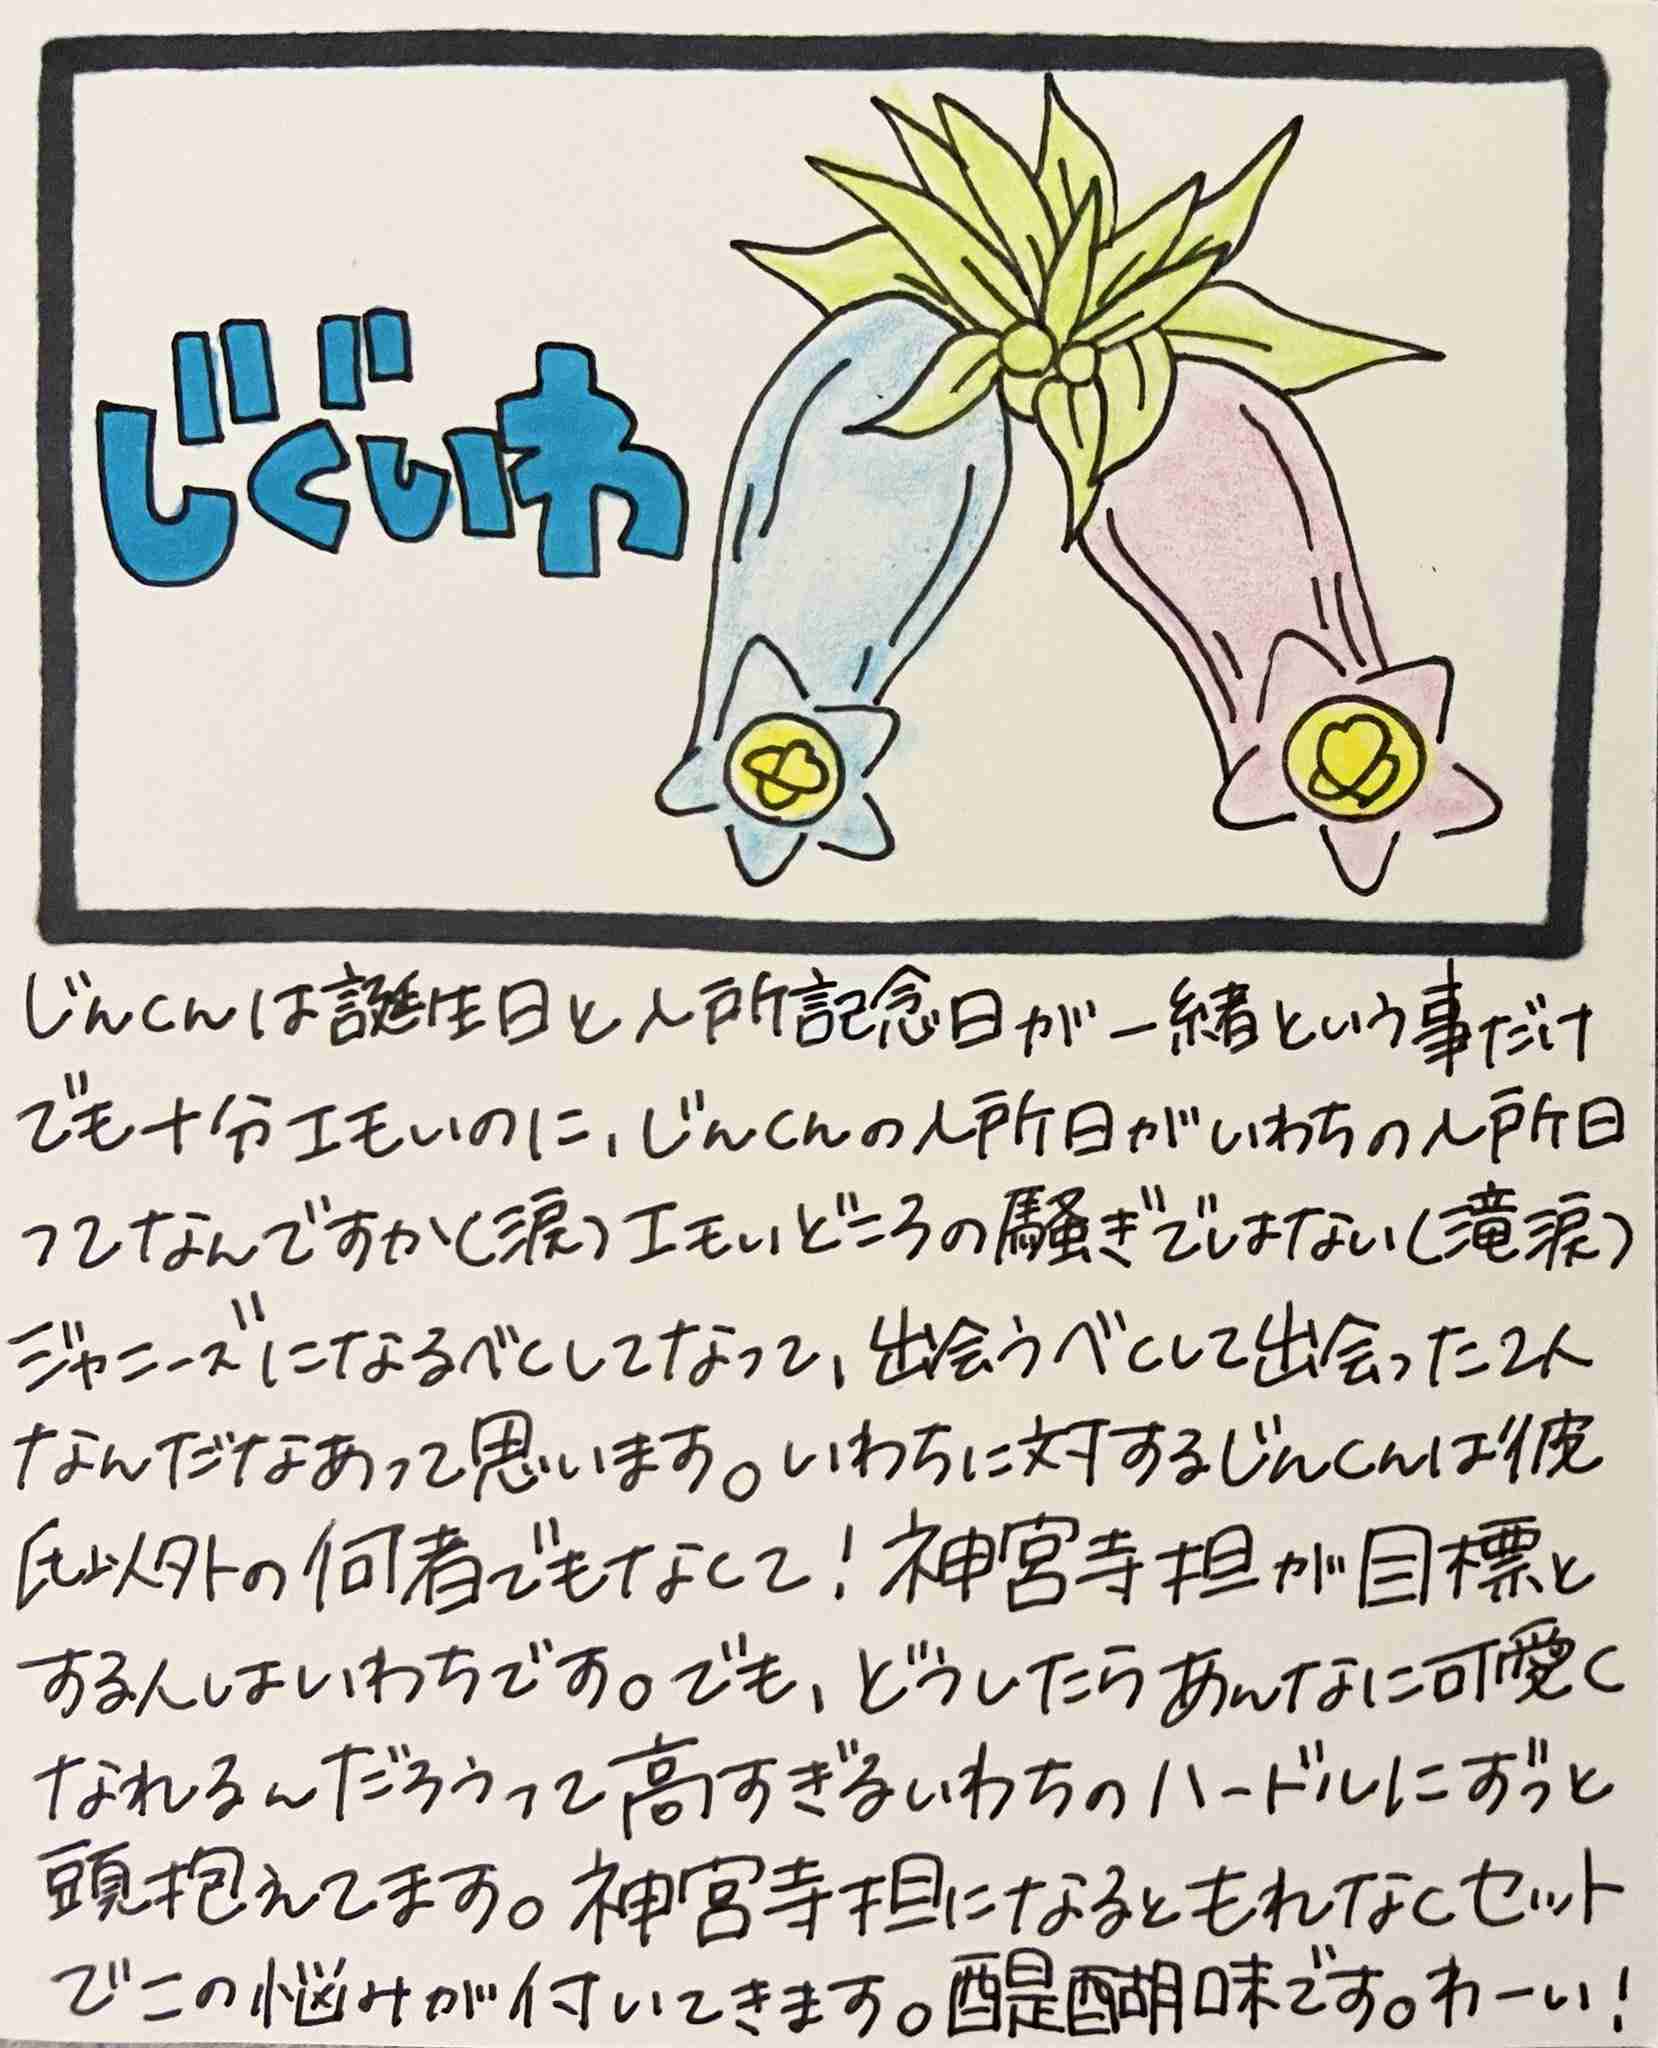 じぐいわ
じんくんは誕生日と入所記念日が一緒という事だけ
でも十分エモいのに、じんくんの入所日がいわちの入所日
ってなんですか(涙)エモいどころの騒ぎではない(滝涙)
ジャニーズになるべくしてなって、出会うべくして出会った2人
なんだなあって思います。いわちに対するじんくんは彼
氏以外の何者でもなくて!神宮寺担が目標と
する人はいわちです。でも、どうしたらあんなに可愛く
なれるんだろうって高すぎるいわちのハードルにずっと
頭抱えてます。神宮寺担になるともれなくセット
でこの悩みが付いてきます。醍醐味です。わーい!